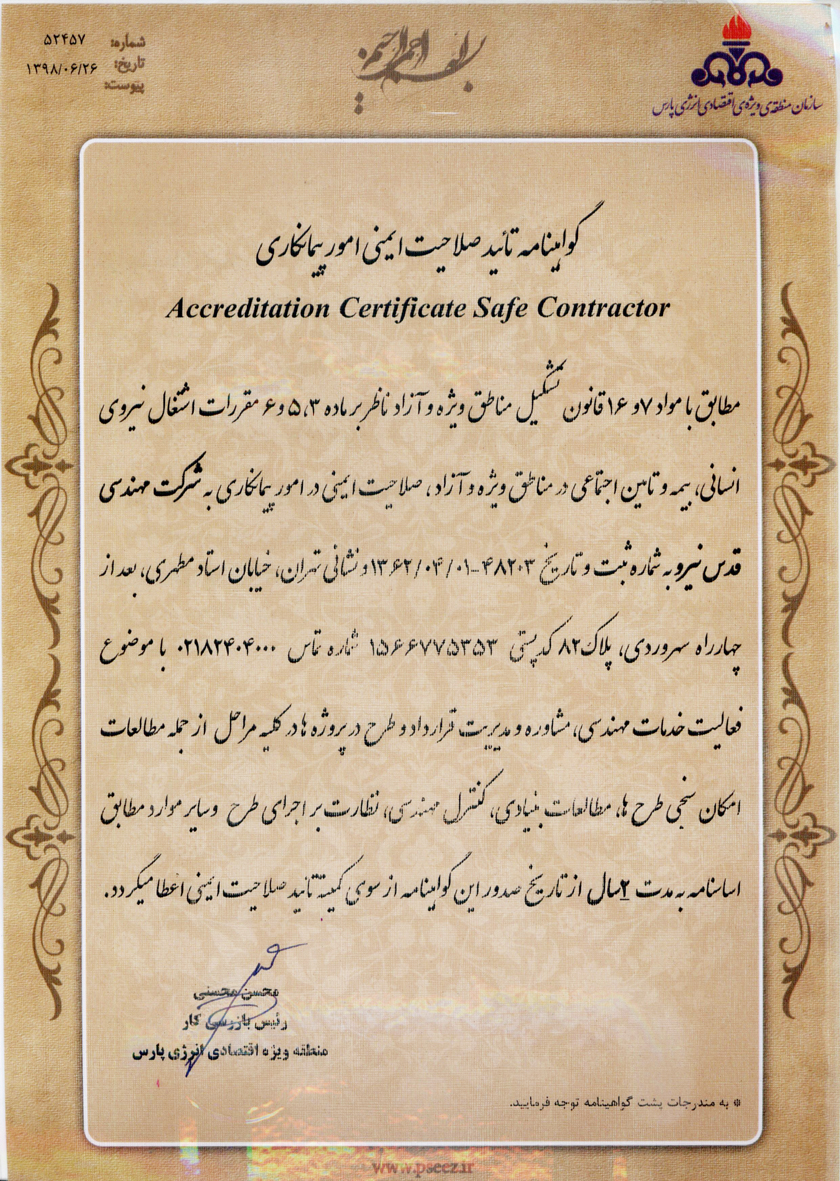 شماره: ۵۲۴۵۷
تاریخ: ۱۳۹۸/۰۶/۲۶
پیوست:
بسم الله الرحمن الرحیم
سازمان منطقه‌ی ویژه‌ی اقتصادی انرژی پارس
گواهینامه تائید صلاحیت ایمنی امور پیمانکاری
Accreditation Certificate Safe Contractor
مطابق با مواد ۷ و ۱۶ قانون تشکیل مناطق ویژه و آزاد ناظر بر ماده ۳، ۵ و ۶ مقررات اشتغال نیروی
انسانی، بیمه و تامین اجتماعی در مناطق ویژه و آزاد، صلاحیت ایمنی در امور پیمانکاری به شرکت مهندسی
قدس نیرو به شماره ثبت و تاریخ ۴۸۲۰۳-۱۳۶۲/۰۴/۰۱ و نشانی تهران، خیابان استاد مطهری، بعد از
چهارراه سهروردی، پلاک ۸۲ کد پستی ۱۵۶۶۷۷۵۳۵۳ شماره تماس ۰۲۱۸۲۴۰۴۰۰۰ با موضوع
فعالیت خدمات مهندسی، مشاوره و مدیریت قرارداد و طرح در پروژه ها در کلیه مراحل از جمله مطالعات
امکان سنجی طرح ها، مطالعات بنیادی، کنترل مهندسی، نظارت بر اجرای طرح و سایر موارد مطابق
اساسنامه به مدت ۲ سال از تاریخ صدور این گواهینامه از سوی کمیته تائید صلاحیت ایمنی اعطا میگردد.
محسن محسنی
رئیس بازرسی کار
منطقه ویژه اقتصادی انرژی پارس
* به مندرجات پشت گواهینامه توجه فرمایید.
www.pseez.ir